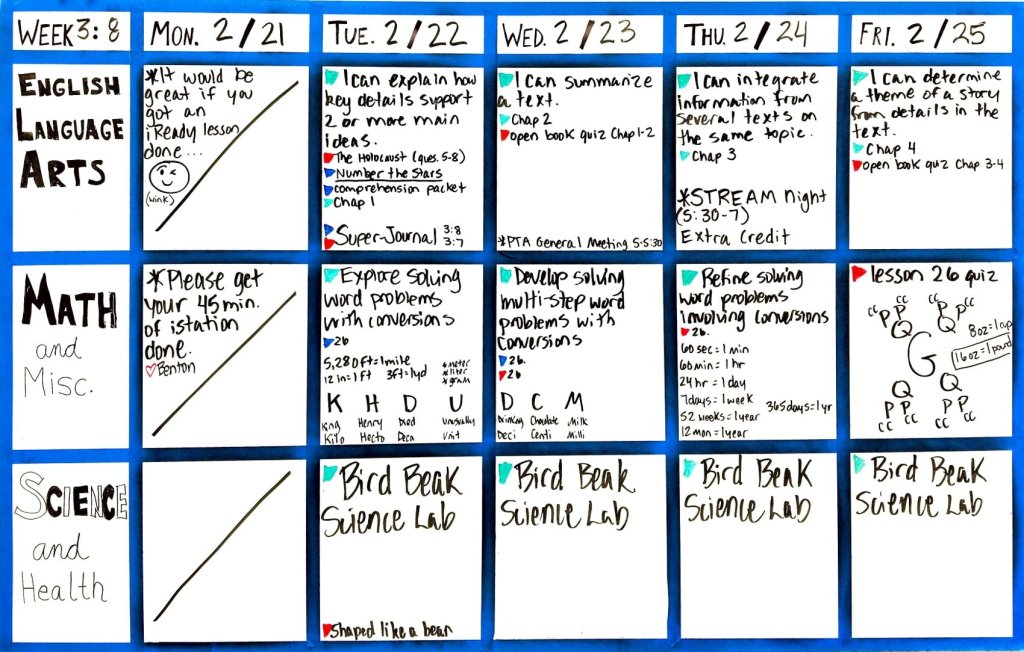 WEEK 3:8
MON. 2/21
TUE. 2/22
WED. 2/23
THU. 2/24
FRI. 2/25
ENGLISH
LANGUAGE
ARTS
*It would be
great if you
got an
iReady lesson
done...
(wink)
I can explain how
key details support
2 or more main
ideas.
The Holocaust (ques. 5-8)
Number the Stars
comprehension packet
Chap 1
Super-Journal 3:8
3:7
I can summarize
a text.
Chap 2
open book quiz Chap 1-2
*PTA General Meeting 5-5:30
I can integrate
information from
several texts on
the same topic.
Chap 3
*STREAM Night
(5:30-7)
Extra Credit
I can determine
a theme of a story
from details in the
text.
Chap 4
open book quiz Chap 3-4
MATH
and
Misc.
*Please get
your 45 min.
of istation
done.
♡Benton
Explore solving
word problems
with conversions
26
5,280ft=1mile *meter
12in=1ft 3ft=1yd *liter
*gram
K H D U
King Henry Died Unusually
Kilo Hecto Deca Unit
Develop solving
multi-step word
problems with
conversions
26
26
D C M
Drinking Chocolate Milk
Deci Centi Milli
Refine solving
word problems
involving conversions
26
60 sec = 1 min
60 min = 1 hr
24 hr = 1 day
7days = 1 week 365days=1yr
52 weeks = 1year
12 mon = 1year
lesson 26 quiz
cc cc cc cc
P P P P
Q Q
8oz=1cup
G
16oz=1pound
Q Q
P P P P
cc cc cc cc
SCIENCE
and
Health
Bird Beak
Science Lab
Shaped like a bean
Bird Beak
Science Lab
Bird Beak
Science Lab
Bird Beak
Science Lab